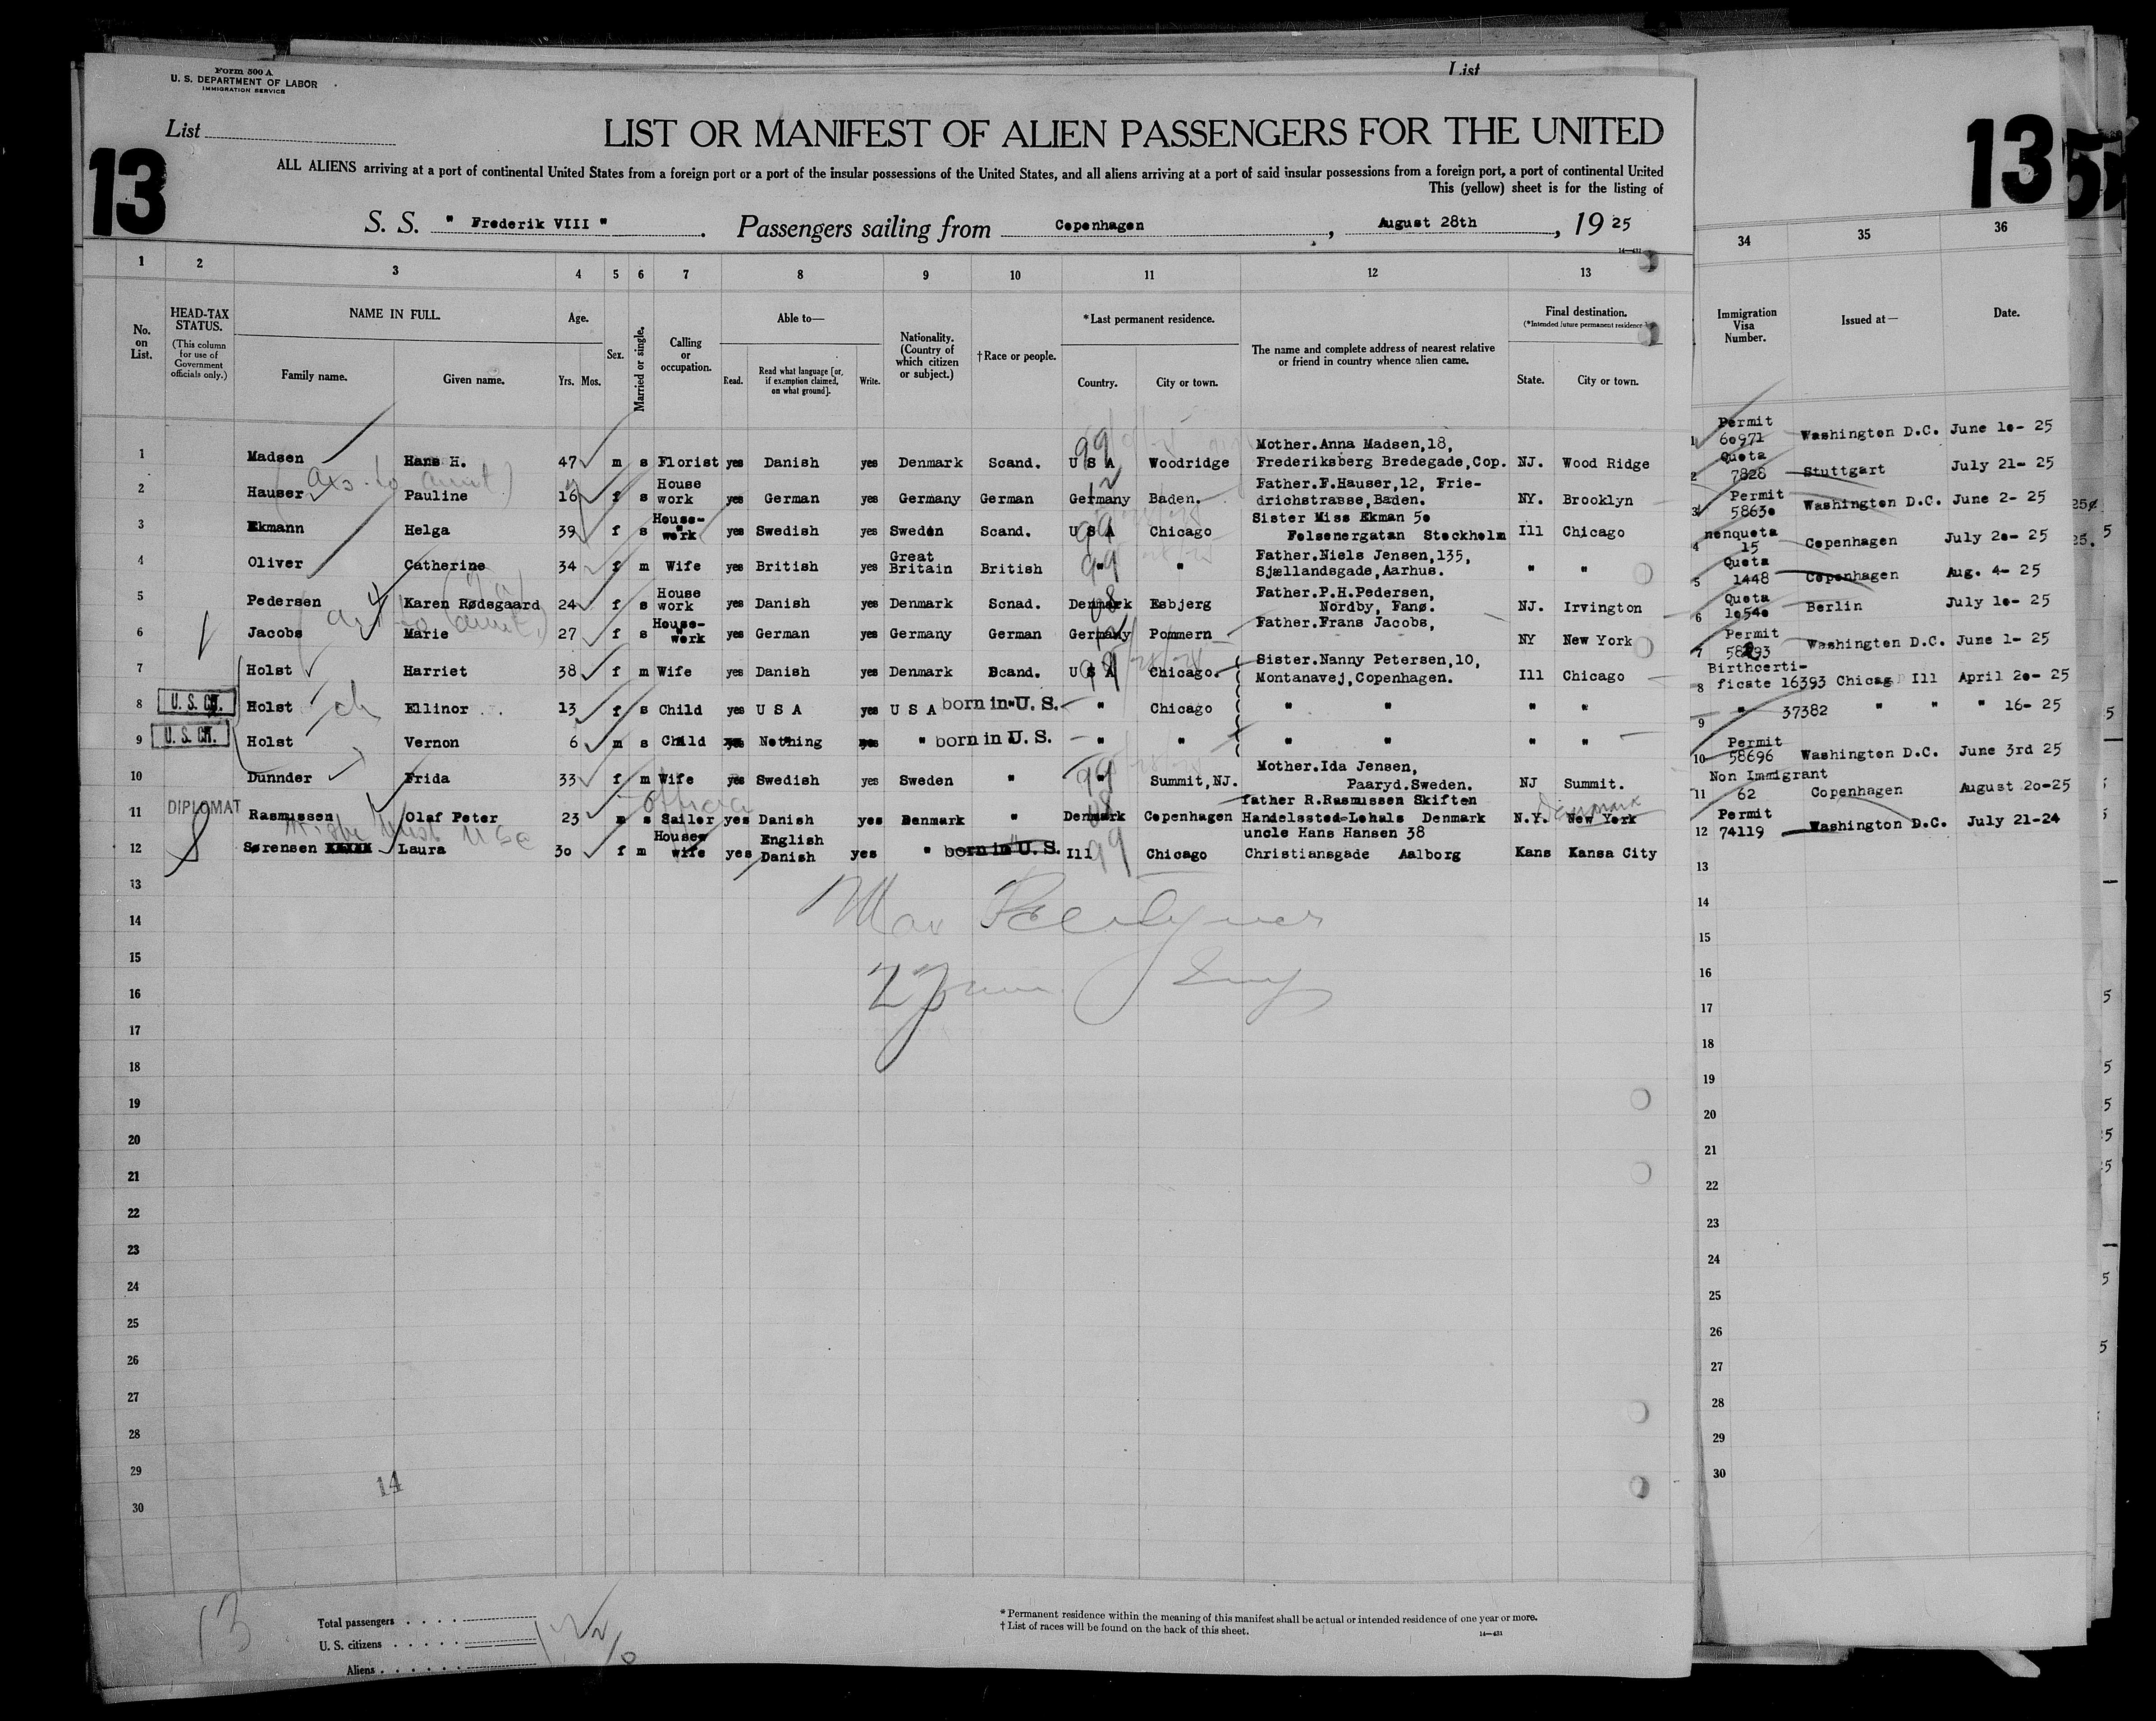 Form 500 A
U. S. DEPARTMENT OF LABOR
IMMIGRATION SERVICE
List
List
13
13
5
LIST OR MANIFEST OF ALIEN PASSENGERS FOR THE UNITED
ALL ALIENS arriving at a port of continental United States from a foreign port or a port of the insular possessions of the United States, and all aliens arriving at a port of said insular possessions from a foreign port, a port of continental United
This (yellow) sheet is for the listing of
S. S. " Frederik VIII " . Passengers sailing from Copenhagen , August 28th , 19 25
14—431
1 2 3 4 5 6 7 8 9 10 11 12 13 34 35 36
No. on List.
HEAD-TAX STATUS.
(This column for use of Government officials only.)
NAME IN FULL.
Family name. Given name.
Age.
Yrs. Mos.
Sex.
Married or single.
Calling or occupation.
Able to—
Read. Read what language [or, if exemption claimed, on what ground]. Write.
Nationality. (Country of which citizen or subject.)
†Race or people.
*Last permanent residence.
Country. City or town.
The name and complete address of nearest relative or friend in country whence alien came.
Final destination.
(*Intended future permanent residence)
State. City or town.
Immigration Visa Number.
Issued at—
Date.
1 Madsen Hans H. 47 m s Florist yes Danish yes Denmark Scand. U S A Woodridge Mother.Anna Madsen,18, Frederiksberg Bredegade,Cop. NJ. Wood Ridge
1 Permit 60971 Washington D.C. June 10- 25
2 Hauser Pauline 16 f s House work yes German yes Germany German Germany Baden. Father.F.Hauser,12, Frie- drichstrasse,Baden. NY. Brooklyn
2 Quota 7828 Stuttgart July 21- 25
3 Ekmann Helga 39 f s House- work yes Swedish yes Sweden Scand. U S A Chicago Sister Miss Ekman 50 Folsenergatan Stockholm Ill Chicago
3 Permit 58630 Washington D.C. June 2- 25
4 Oliver Catherine 34 f m Wife yes British yes Great Britain British " " Father.Niels Jensen,135, Sjællandsgade,Aarhus. " "
4 nonquota 15 Copenhagen July 20- 25
5 Pedersen Karen Rødsgaard 24 f s House work yes Danish yes Denmark Scnad. Denmark Esbjerg Father.P.H.Pedersen, Nordby, Fanø. NJ. Irvington
5 Quota 1448 Copenhagen Aug. 4- 25
6 Jacobs Marie 27 f s House- work yes German yes Germany German Germany Pommern Father.Frans Jacobs, NY New York
6 Quota 10540 Berlin July 10- 25
7 Holst Harriet 38 f m Wife yes Danish yes Denmark Scand. U S A Chicago. Sister.Nanny Petersen,10, Montanavej,Copenhagen. Ill Chicago
7 Permit 58293 Washington D.C. June 1- 25
8 U. S. CIT. Holst Ellinor 13 f s Child yes U S A yes U S A born in U. S. " Chicago " " " "
8 Birthcerti- ficate 16393 Chicag Ill April 20- 25
9 U. S. CIT. Holst Vernon 6 m s Child Nothing " born in U. S. " " " " " "
9 " 37382 " " " 16- 25
10 Dunnder Frida 33 f m Wife yes Swedish yes Sweden " " Summit,NJ. Mother.Ida Jensen, Paaryd.Sweden. NJ Summit.
10 Permit 58696 Washington D.C. June 3rd 25
11 DIPLOMAT Rasmussen Olaf Peter 23 m s Sailor yes Danish yes Denmark " Denmark Copenhagen father R.Rasmussen Skiften Handelssted-Lohals Denmark N.Y. New York
11 Non Immigrant 62 Copenhagen August 20-25
12 Sørensen Laura 30 f m House wife yes English Danish yes " born in U. S. Ill Chicago uncle Hans Hansen 38 Christiansgade Aalborg Kans Kansa City
12 Permit 74119 Washington D.C. July 21-24
official
Denmark
99
12
99
99
08
12
99
99
08
99
13 13
14 14
15 15
16 16
17 17
18 18
19 19
20 20
21 21
22 22
23 23
24 24
25 25
26 26
27 27
28 28
29 29
30 30
14
13
Total passengers
U. S. citizens
Aliens
* Permanent residence within the meaning of this manifest shall be actual or intended residence of one year or more.
† List of races will be found on the back of this sheet.
14—431